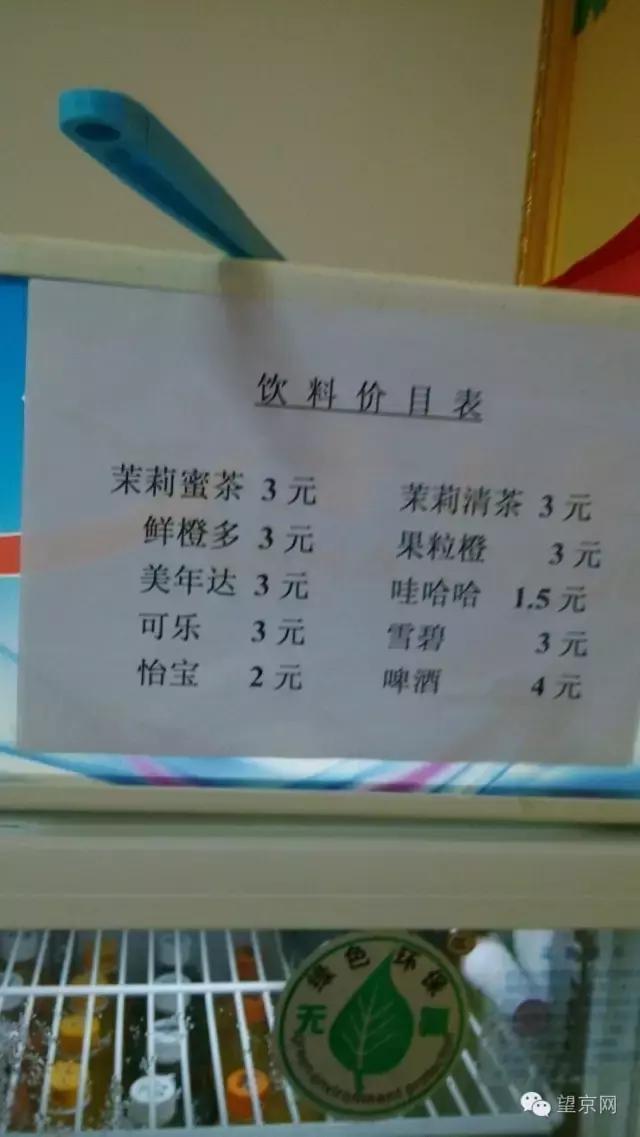 饮料价目表
茉莉蜜茶 3元 茉莉清茶 3元
鲜橙多 3元 果粒橙 3元
美年达 3元 哇哈哈 1.5元
可乐 3元 雪碧 3元
怡宝 2元 啤酒 4元
绿色环保
无氟
green environment protection
望京网